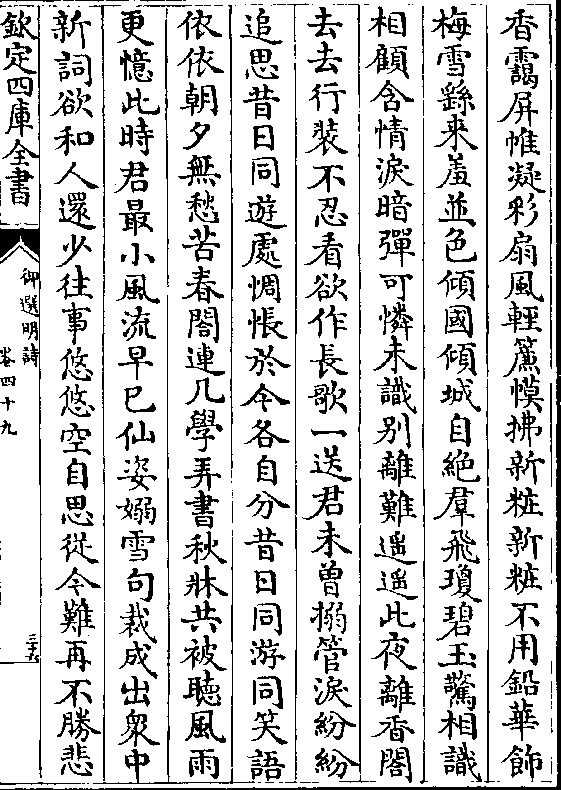 香靄屏帷凝彩扇風輕簾幙拂新粧新粧不用鉛華飾
梅雪繇來羞並色傾國傾城自絶羣飛瓊碧玉驚相識
相顧含情淚暗彈可憐未識别離難遥遥此夜離香閣
去去行裝不忍看欲作長歌一送君未曾搦管淚紛紛
追思昔日同遊處惆悵於今各自分昔日同游同笑語
依依朝夕無愁苦春閣連几學弄書秋牀共被聽風雨
更憶此時君最小風流早已仙姿嫋雪句裁成出衆中
新詞欲和人還少往事悠悠空自思從今難再不勝悲
欽定四庫全書
御選明詩
卷四十九
三十六